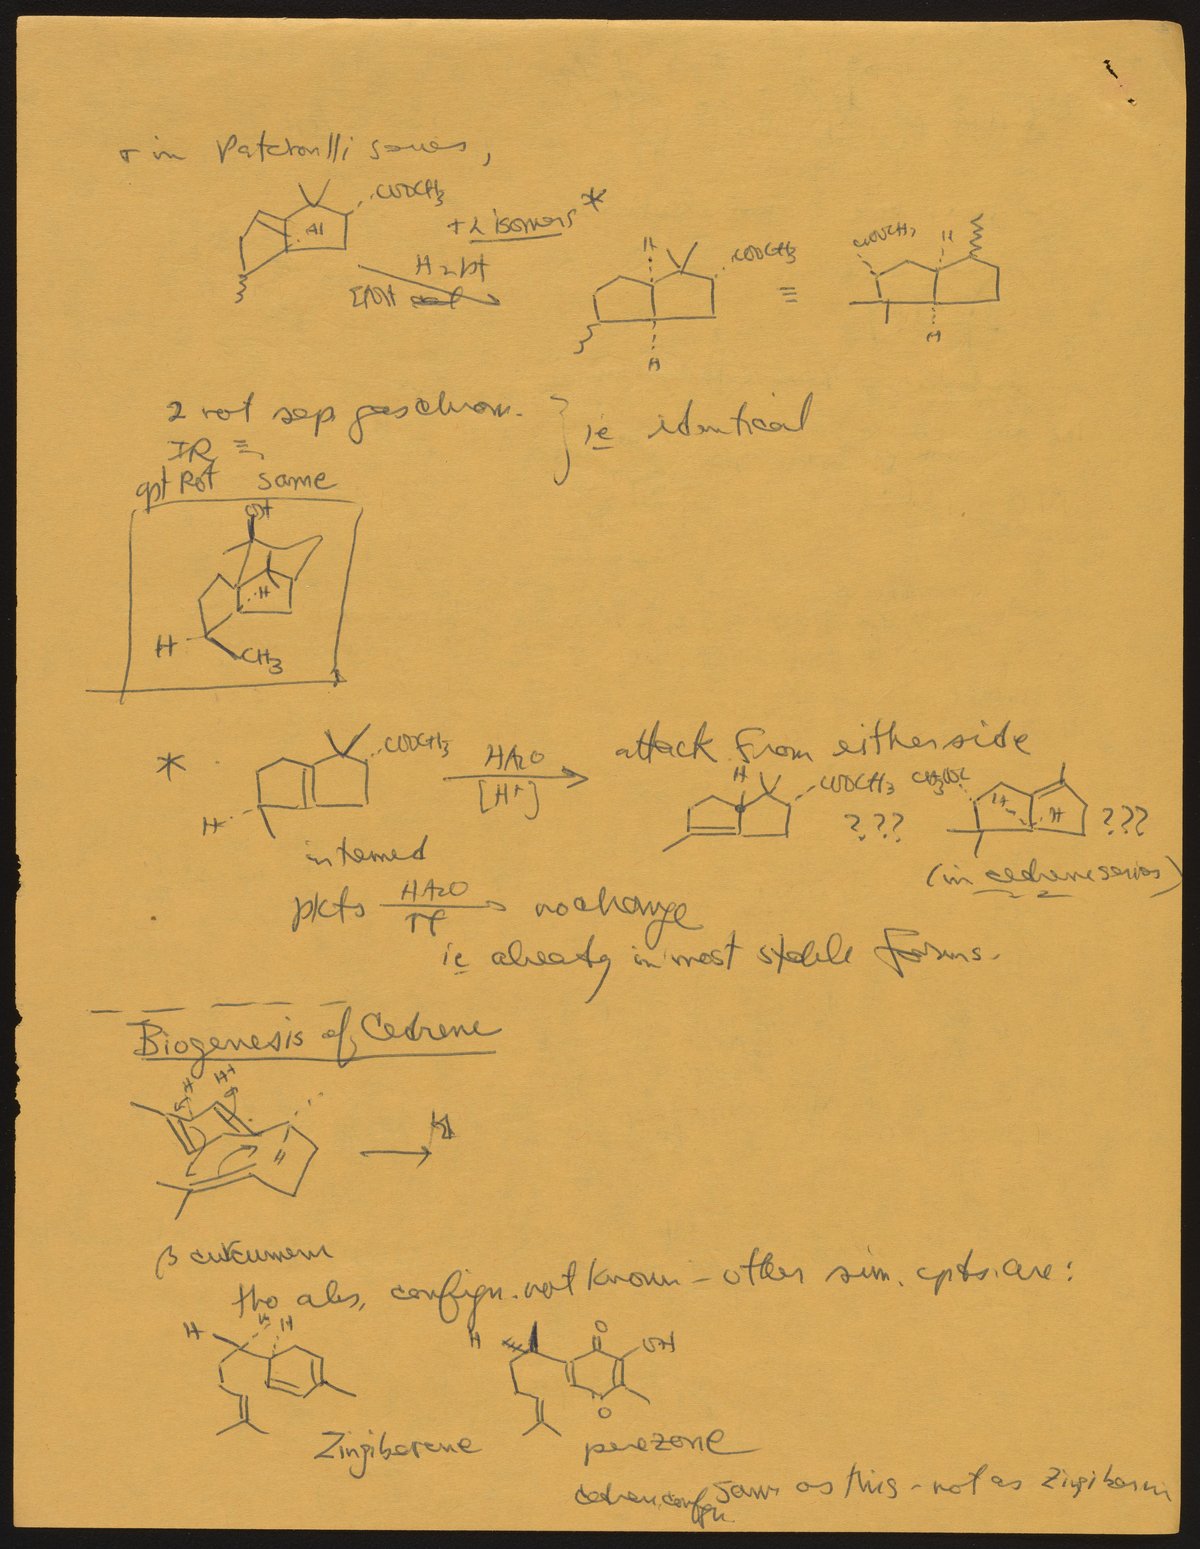 in Patchoulli series,
COOCH3
A1
+ 2 isomers *
H2 pt
EtOH
H
COOCH3
≡
COOCH3
H
H
H
2 not sep gas chrom.
IR ≡
opt Rot same
ie identical
OH
H
H
CH3
*
COOCH3
H
HA20
[H+]
attack from either side
H
COOCH3
???
CH3OOC
H
H
???
intermed
(in cedrene series)
pkts HA20 no change
ie already in most stable forms.
Biogenesis of Cedrene
H+
H+
β curcumene
tho abs. config. not known - other sim. cpds. are:
H
H
H
H
O
OH
O
Zingiberene
perezone
cedrene config same as this - not as Zingiberin